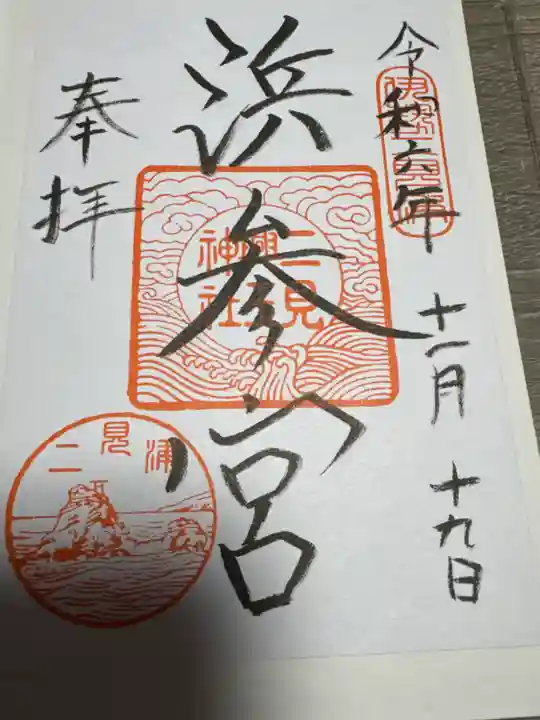 令和六年 十一月 十九日
伊勢二見浦
浜参宮
二見興神社
奉拝
二見浦